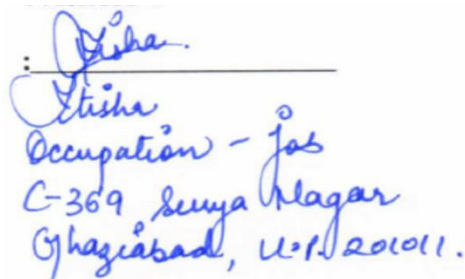 : Itisha.
Itisha
Occupation - job
C-369 Surya Nagar
Ghaziabad, U.P. 201011.